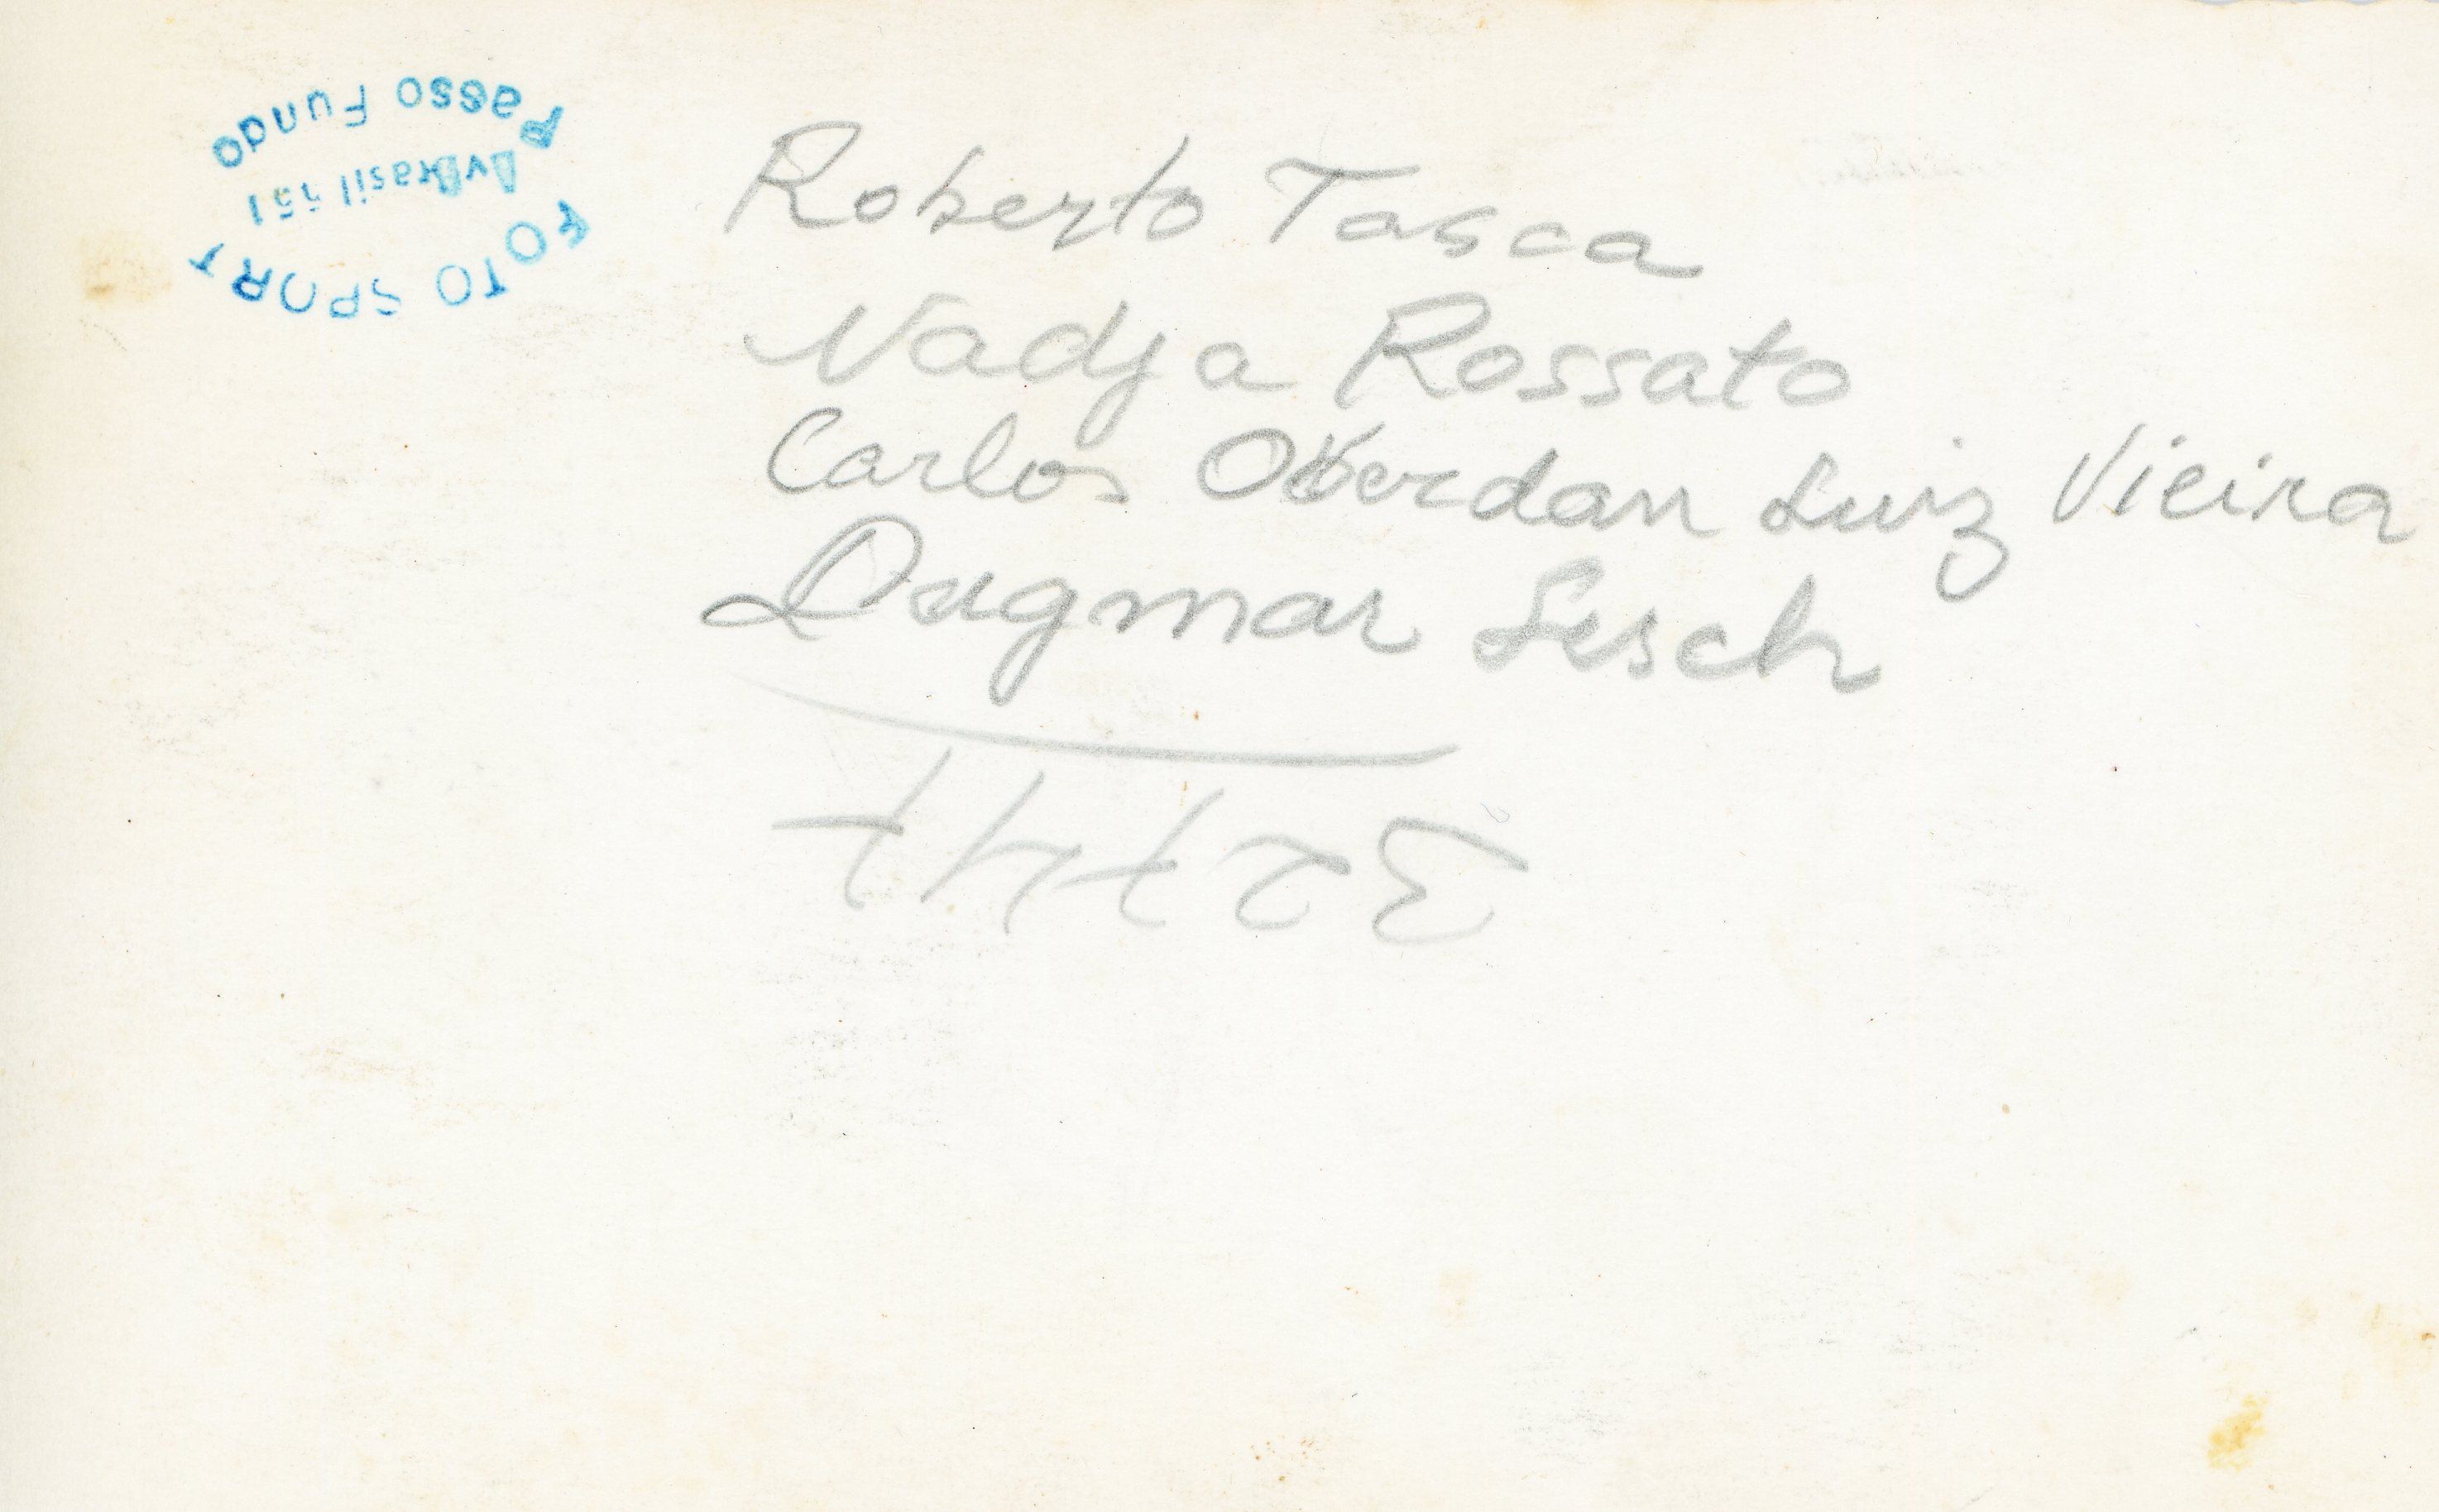 FOTO SPORT
Av Brasil 551
Passo Fundo
Roberto Tasca
Nadja Rossato
Carlos Oberdan Luiz Vieira
Dagmar Lesch
32747